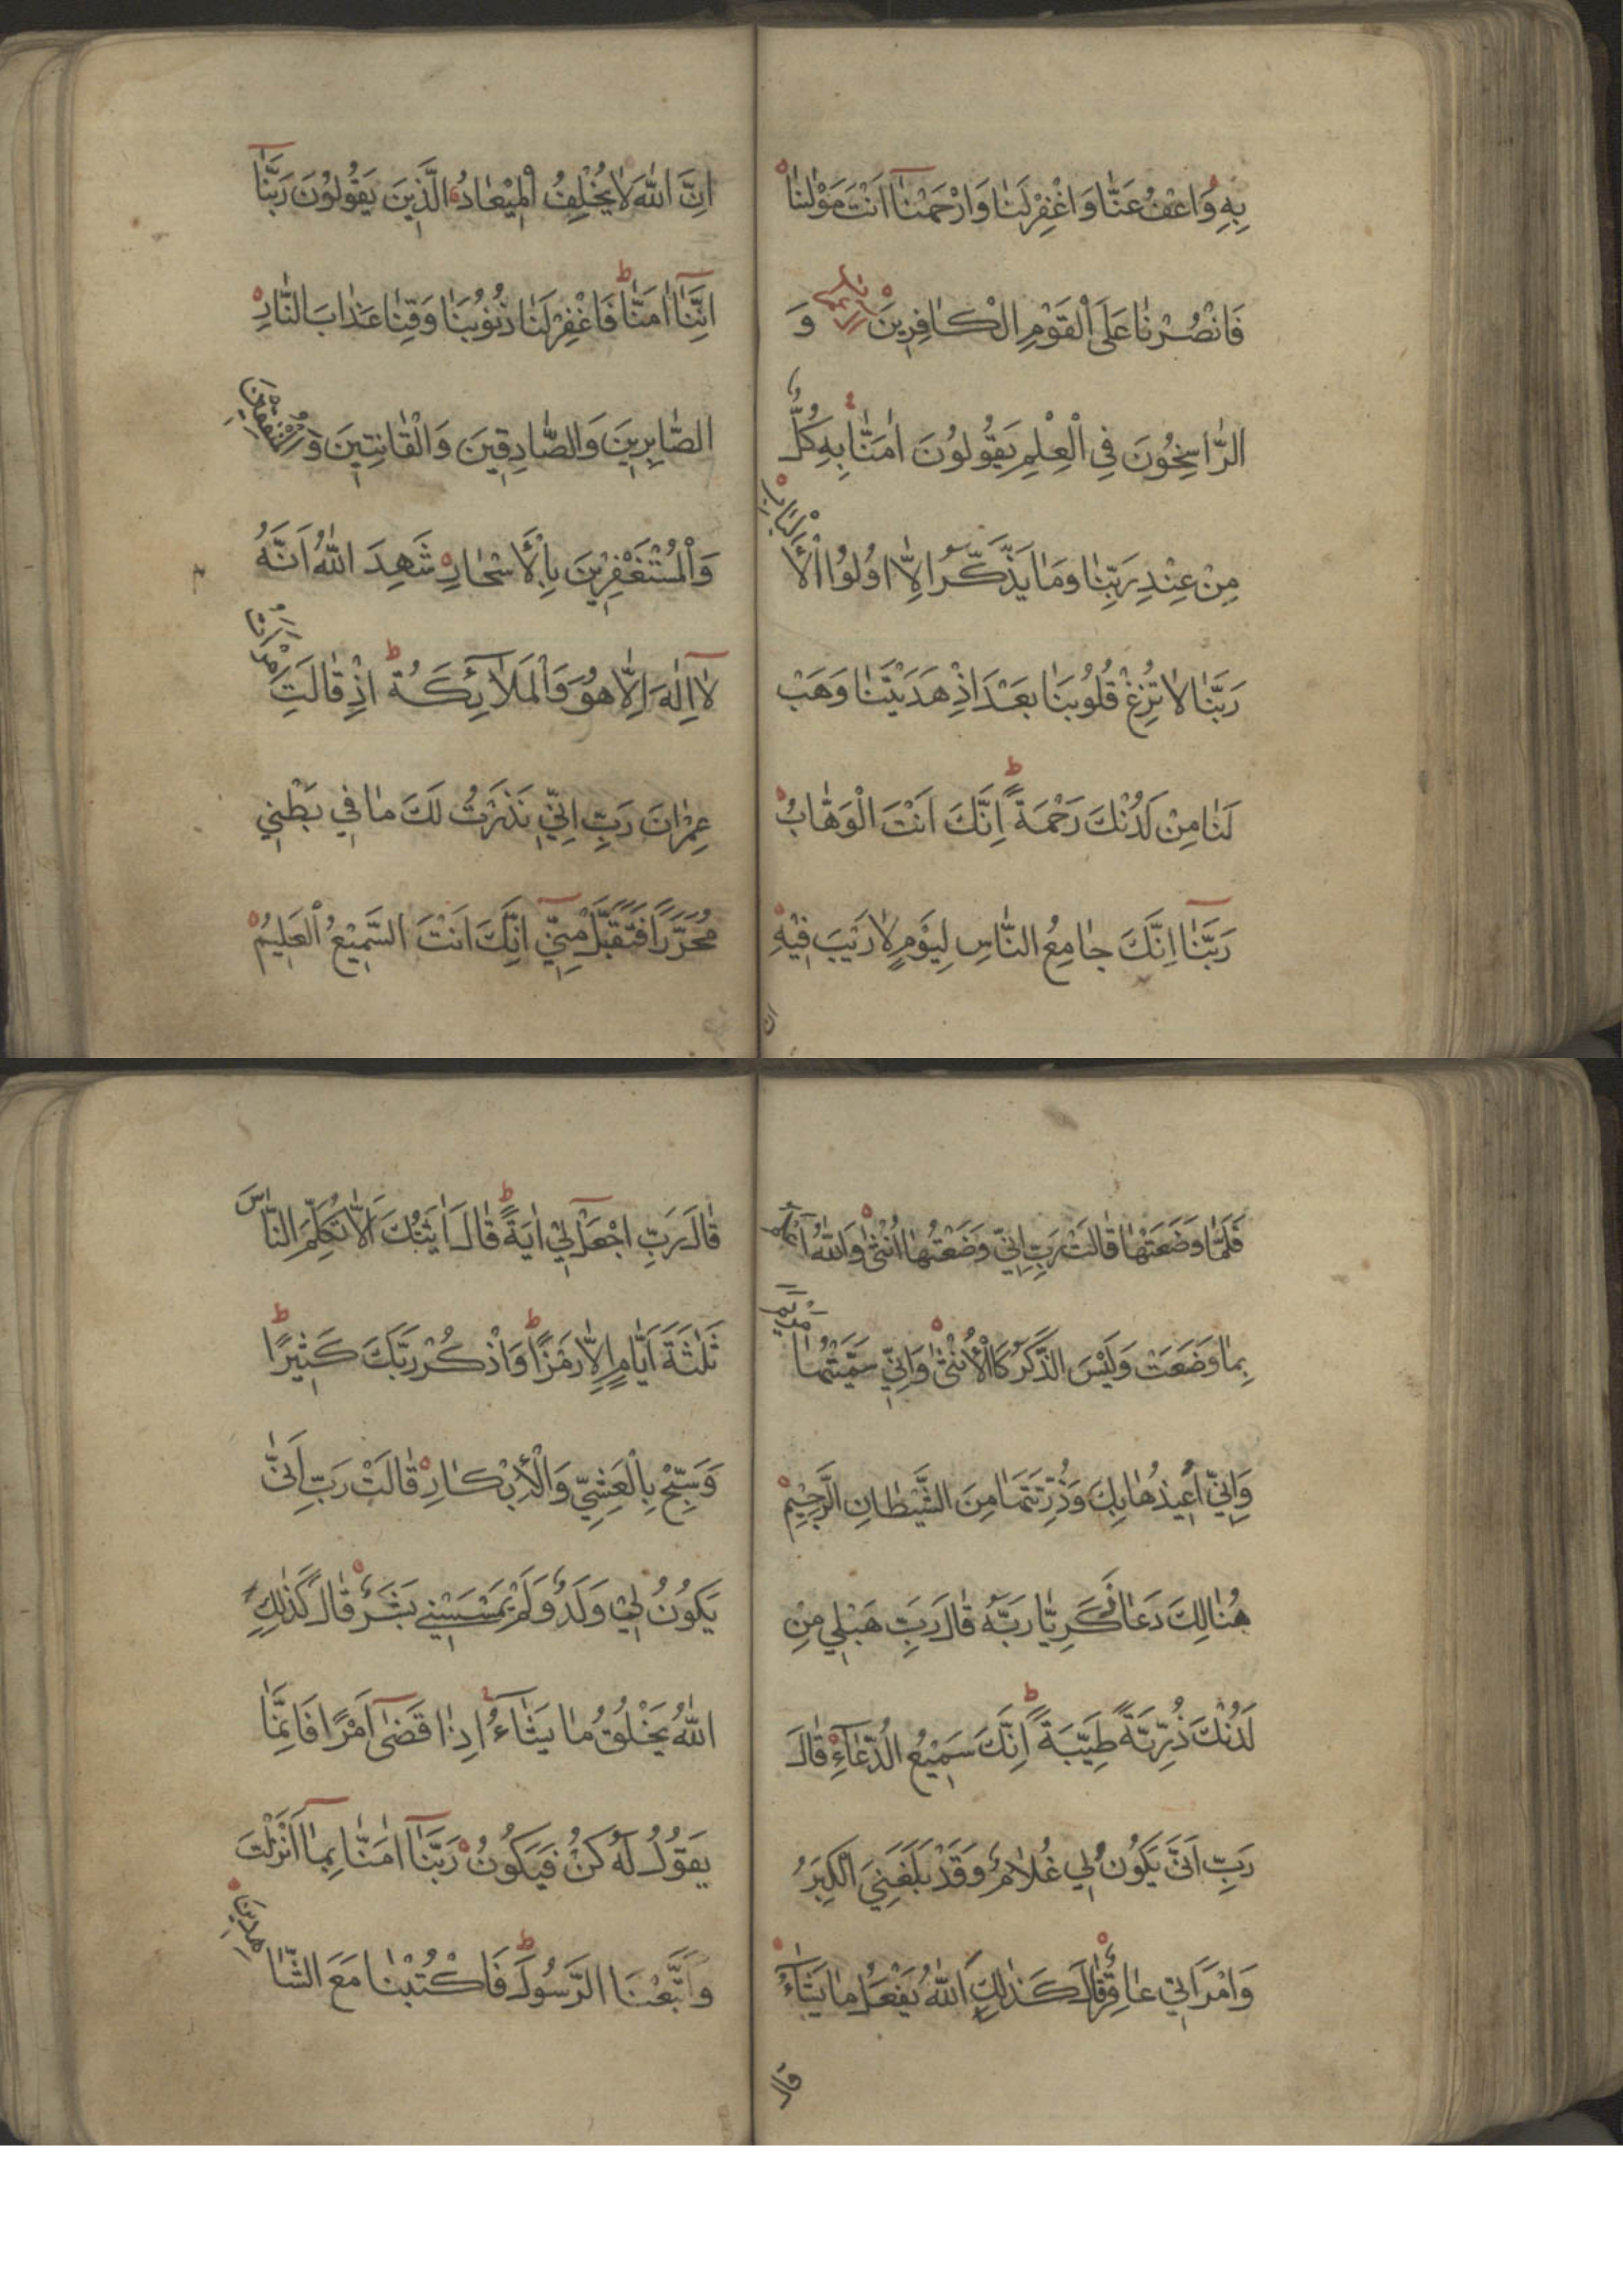 بِهِ وَاعْفُ عَنَّا وَاغْفِرْ لَنَا وَارْحَمْنَا اَنْتَ مَوْلٰينَا
فَانْصُرْنَا عَلَى الْقَوْمِ الْكَافِرِينَ وَ
الرَّاسِخُونَ فِي الْعِلْمِ يَقُولُونَ اٰمَنَّا بِهِ كُلٌّ
مِنْ عِنْدِ رَبِّنَا وَمَا يَذَّكَّرُ اِلَّا اُولُوا الْاَلْبَابِ
رَبَّنَا لَا تُزِغْ قُلُوبَنَا بَعْدَ اِذْ هَدَيْتَنَا وَهَبْ
لَنَا مِنْ لَدُنْكَ رَحْمَةً اِنَّكَ اَنْتَ الْوَهَّابُ
رَبَّنَا اِنَّكَ جَامِعُ النَّاسِ لِيَوْمٍ لَا رَيْبَ فِيْهِ
ان
اِنَّ اللّٰهَ لَا يُخْلِفُ الْمِيْعَادُ الَّذِينَ يَقُولُونَ رَبَّنَا
اِنَّنَا اٰمَنَّا فَاغْفِرْ لَنَا ذُنُوبَنَا وَقِنَا عَذَابَ النَّارِ
الصَّابِرِينَ وَالصَّادِقِينَ وَالْقَانِتِينَ وَالْمُنْفِقِينَ
وَالْمُسْتَغْفِرِينَ بِالْاَسْحَارِ شَهِدَ اللّٰهُ اَنَّهُ
لَا اِلٰهَ اِلَّا هُوَ وَالْمَلَآئِكَةُ اِذْ قَالَتِ امْرَاَتُ
عِمْرَانَ رَبِّ اِنِّي نَذَرْتُ لَكَ مَا فِي بَطْنِي
مُحَرَّرًا فَتَقَبَّلْ مِنِّي اِنَّكَ اَنْتَ السَّمِيْعُ الْعَلِيمُ
فَلَمَّا وَضَعَتْهَا قَالَتْ رَبِّ اِنِّي وَضَعْتُهَا اُنْثٰى وَاللّٰهُ اَعْلَمُ
بِمَا وَضَعَتْ وَلَيْسَ الذَّكَرُ كَالْاُنْثٰى وَاِنِّي سَمَّيْتُهَا مَرْيَمَ
وَاِنِّي اُعِيذُهَا بِكَ وَذُرِّيَّتَهَا مِنَ الشَّيْطَانِ الرَّجِيْمِ
هُنَالِكَ دَعَا زَكَرِيَّا رَبَّهُ قَالَ رَبِّ هَبْ لِي مِنْ
لَدُنْكَ ذُرِّيَّةً طَيِّبَةً اِنَّكَ سَمِيْعُ الدُّعَآءِ قَالَ
رَبِّ اَنّٰى يَكُونُ لِي غُلَامٌ وَقَدْ بَلَغَنِيَ الْكِبَرُ
وَامْرَاَتِي عَاقِرٌ قَالَ كَذٰلِكَ اللّٰهُ يَفْعَلُ مَا يَشَآءُ
قال
قَالَ رَبِّ اجْعَلْ لِي اٰيَةً قَالَ اٰيَتُكَ اَلَّا تُكَلِّمَ النَّاسَ
ثَلٰثَةَ اَيَّامٍ اِلَّا رَمْزًا وَاذْكُرْ رَبَّكَ كَثِيرًا
وَسَبِّحْ بِالْعَشِيِّ وَالْاِبْكَارِ قَالَتْ رَبِّ اَنّٰى
يَكُونُ لِي وَلَدٌ وَلَمْ يَمْسَسْنِي بَشَرٌ قَالَ كَذٰلِكِ
اللّٰهُ يَخْلُقُ مَا يَشَآءُ اِذَا قَضٰى اَمْرًا فَاِنَّمَا
يَقُولُ لَهُ كُنْ فَيَكُونُ رَبَّنَا اٰمَنَّا بِمَا اَنْزَلْتَ
وَاتَّبَعْنَا الرَّسُولَ فَاكْتُبْنَا مَعَ الشَّاهِدِينَ